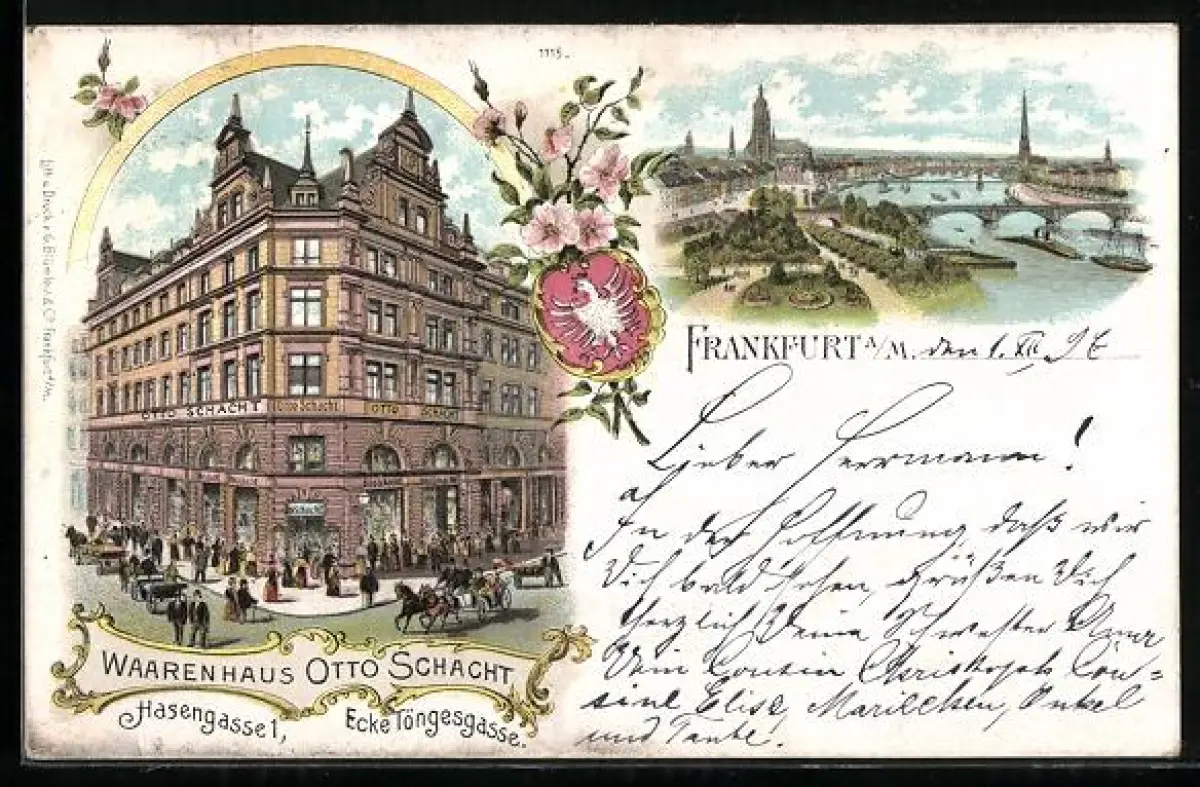 1115.
Lith. u. Druck v. G. Blümlein & Co. Frankfurt a/M.
OTTO SCHACHT
Otto Schacht
OTTO SCHACHT
WAARENHAUS OTTO SCHACHT
Hasengasse 1, Ecke Töngesgasse.
FRANKFURT A/M. den 1. XII. 97
Lieber Herrmann!
In der Hoffnung, daß wir
Dich bald sehen, grüßen Dich
herzlich Deine Schwester Anna
Dein Cousin Christoph Cou=
sine Elise, Marieechen, Onkel
und Tante!